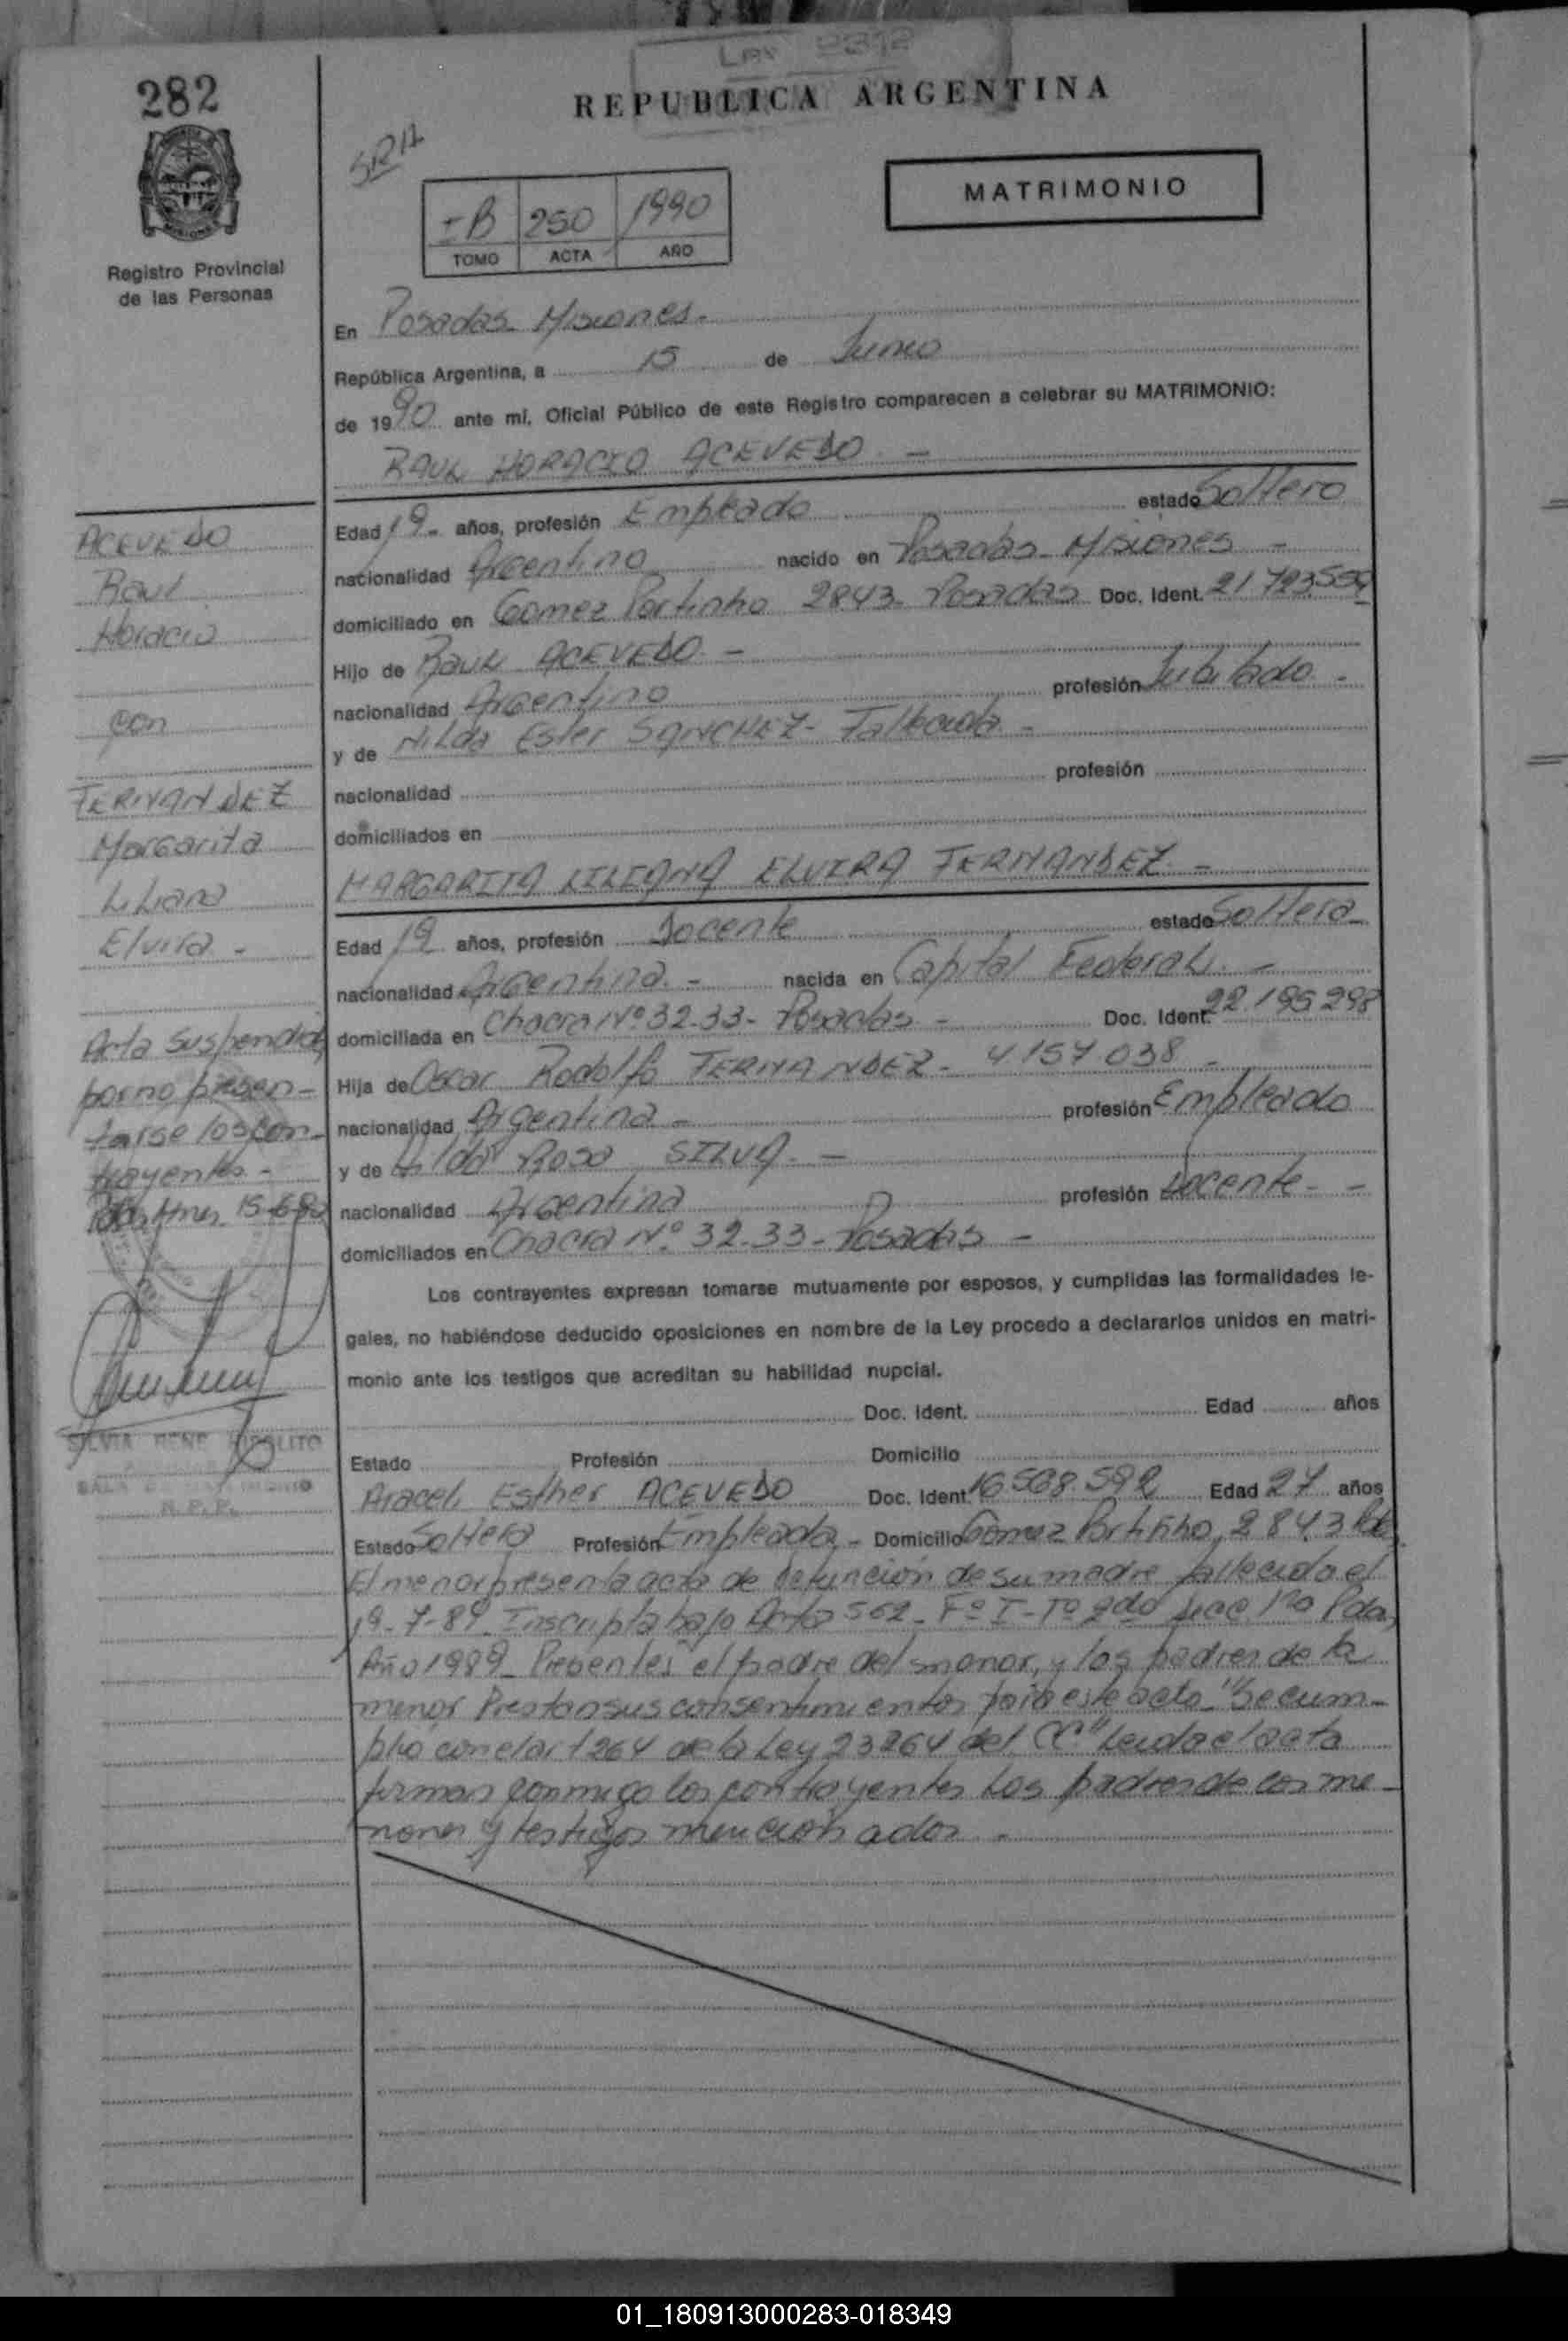 282
REPUBLICA ARGENTINA
MATRIMONIO
I-B 250 1990
TOMO ACTA AÑO
Registro Provincial
de las Personas
En Posadas Misiones.
República Argentina, a 15 de Junio
de 1990 ante mí, Oficial Público de este Registro comparecen a celebrar su MATRIMONIO:
RAUL HORACIO ACEVEDO. -
Edad 19- años, profesión Empleado estado Soltero
nacionalidad Argentino nacido en Posadas- Misiones -
domiciliado en Gomez Portinho 2843- Posadas Doc. Ident. 21 723.559
Hijo de RAUL ACEVEDO. -
nacionalidad Argentino profesión Jubilado -
y de Nilda Ester SANCHEZ- Fallecida. -
nacionalidad profesión
domiciliados en
MARGARITA LILIANA ELVIRA FERNANDEZ. -
Edad 19 años, profesión Docente estado Soltera
nacionalidad Argentina. - nacida en Capital Federal. -
domiciliada en Chacra Nº 32-33- Posadas - Doc. Ident. 22.195 298
Hija de Oscar Rodolfo FERNANDEZ- 4157.038 -
nacionalidad Argentina - profesión Empleado
y de Hilda Rosa SILVA. -
nacionalidad Argentina profesión Docente- -
domiciliados en Chacra Nº 32-33- Posadas -
Los contrayentes expresan tomarse mutuamente por esposos, y cumplidas las formalidades le-
gales, no habiéndose deducido oposiciones en nombre de la Ley procedo a declararlos unidos en matri-
monio ante los testigos que acreditan su habilidad nupcial.
Doc. Ident. Edad años
Estado Profesión Domicilio
Araceli Esther ACEVEDO Doc. Ident. 16 568.592 Edad 27 años
Estado Soltera Profesión Empleada - Domicilio Gomez Portinho 2843
El menor presenta acta de defunción de su madre fallecida el
19-7-89- Inscripta bajo Acta 562- Fº I- Tº 2do Secc 1ra Pdas
Año 1989- Presentes el padre del menor, y los padres de la
menor Prestan sus consentimientos para este acto "Se cum-
plio con el art 264 de la Ley 23264 del CC" Leida el acta
firman conmigo los contrayentes Los padres de los me-
nores y testigos mencionados.
ACEVEDO
Raul
Horacio
con
FERNANDEZ
Margarita
Liliana
Elvira -
Acta Suspendida
por no presen-
tarse los con-
trayentes -
15-6-90
SILVIA RENE HIPOLITO
R.P.P.
01_180913000283-018349